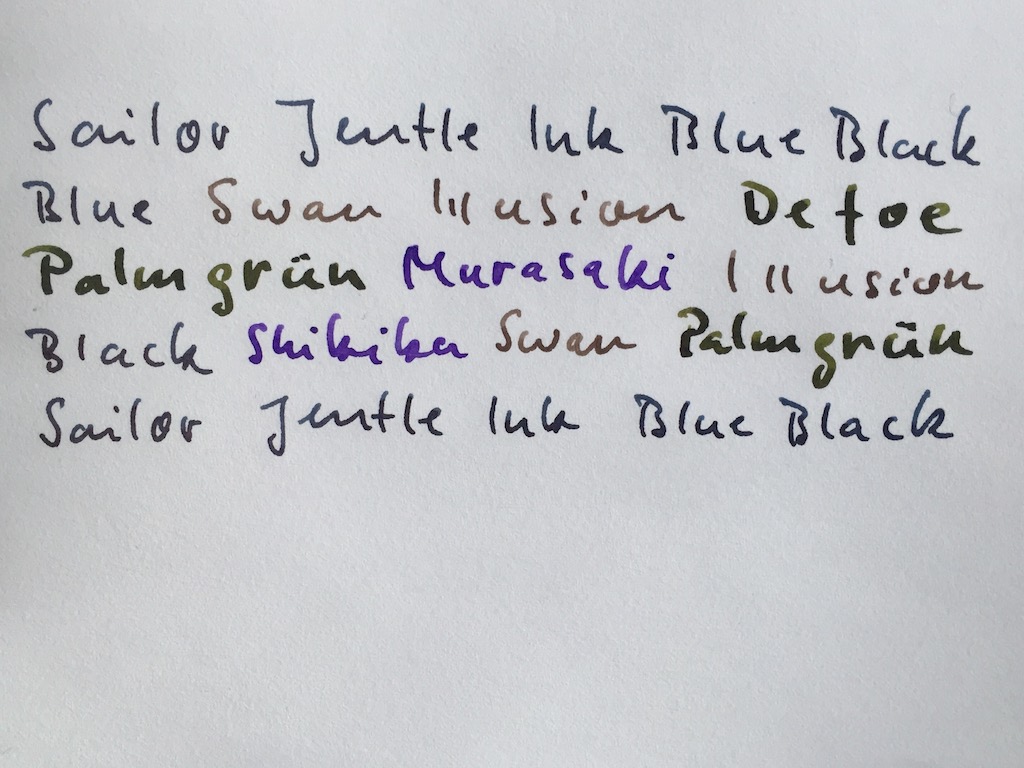 Sailor Jentle Ink Blue Black
Blue Swan Illusion Defoe
Palmgrün Murasaki Illusion
Black Shikibu Swan Palmgrün
Sailor Jentle Ink Blue Black